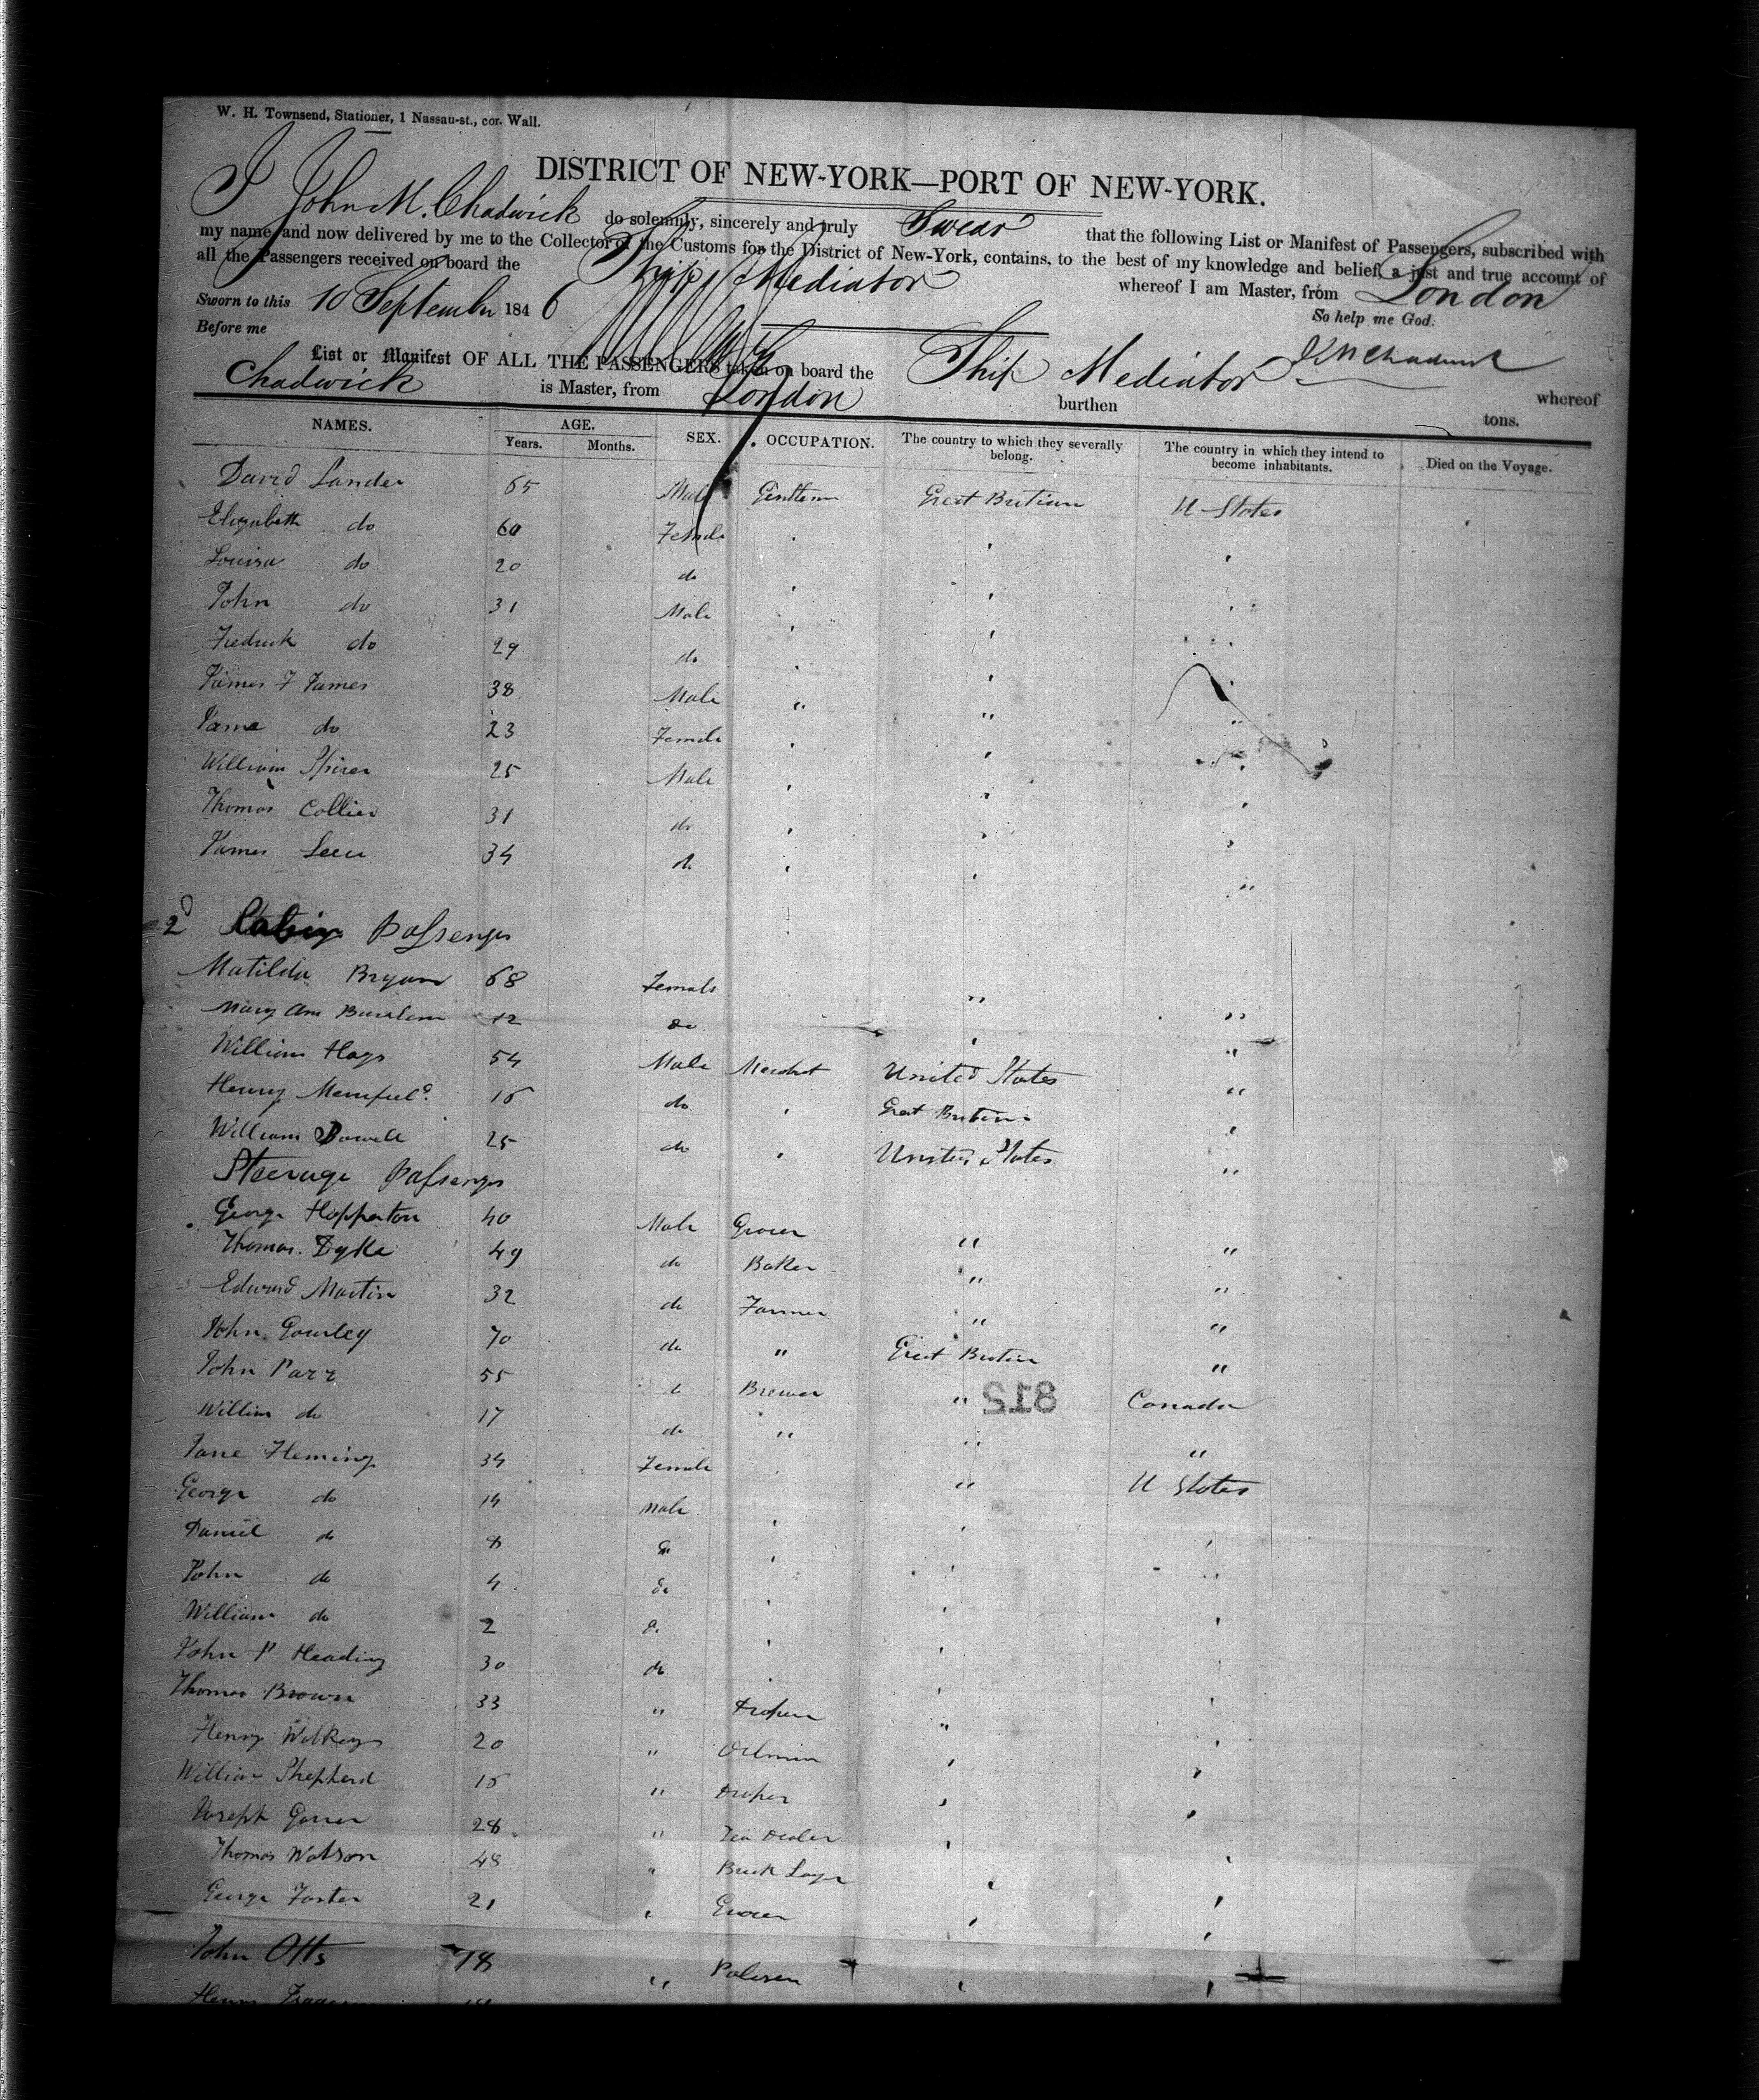 W. H. Townsend, Stationer, 1 Nassau-st., cor. Wall.
DISTRICT OF NEW-YORK—PORT OF NEW-YORK.
I John M. Chadwick do solemnly, sincerely and truly Swear that the following List or Manifest of Passengers, subscribed with
my name, and now delivered by me to the Collector of the Customs for the District of New-York, contains, to the best of my knowledge and belief, a just and true account of
all the Passengers received on board the Ship Mediator whereof I am Master, from London
Sworn to this 10 September 1846 So help me God.
Before me
List or Manifest OF ALL THE PASSENGERS taken on board the Ship Mediator whereof
Chadwick is Master, from London burthen tons.
NAMES. AGE. Years. Months. SEX. OCCUPATION. The country to which they severally belong. The country in which they intend to become inhabitants. Died on the Voyage.
David Lander 65 Male Great Britian U States
Elizabeth do 60 Female
Louisa do 20 do
John do 31 Male
Fredrick do 29 do
James F James 38 Male " " "
Jame do 23 Female
William Spicer 25 Male
Thomas Collier 31 do
James 34 do "
2d Cabin Passenger
Matilda Bryan 68 Female " "
Mary Ann 12 do "
William Hays 54 Male United States "
Henry 16 do Great Britian
William Dowell 25 do United States "
Steerage Passenger
George Hopperton 40 Male Grocer " "
Thomas. Dyke 49 do Baker " "
Edward Martin 32 do Farmer " "
John Gourley 70 do " Great Britian "
John Parr 55 do Brewer " Canada
William do 17 do " " "
Jane Fleming 34 Female " U States
George do 14 Male
Daniel do 8 do
John do 4 do
William do 2 do
John P Heading 30 do
Thomas Brown 33 " Draper "
Henry Wilkeys 20 " Oilman
William Shepherd 15 " Draper
Joseph 28 " Tea Dealer
Thomas Watson 48 " Brick Layr
George Foster 21 Grocer
John Otts 18 "
Henry
812